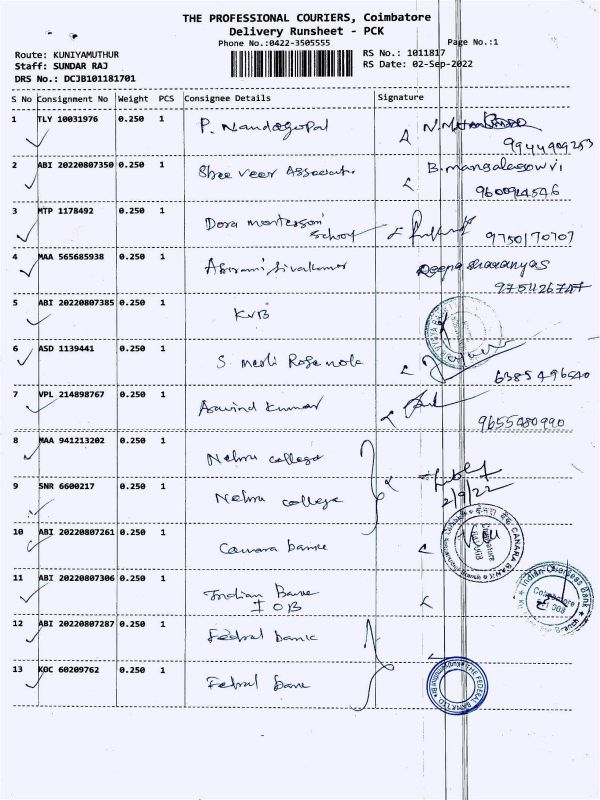 THE PROFESSIONAL COURIERS, Coimbatore
Delivery Runsheet - PCK
Phone No.:0422-3505555
Page No.:1
Route: KUNIYAMUTHUR
RS No.: 1011817
Staff: SUNDAR RAJ
RS Date: 02-Sep-2022
DRS No.: DCJB101181701
S No Consignment No Weight PCS Consignee Details Signature
1 TLY 10031976 0.250 1 P. Nandagopal
9944909253
2 ABI 20220807350 0.250 1 Shree Veer Associate B. mangalagowri
9600914546
3 MTP 1178492 0.250 1 Dora montessori
School 9750170707
4 MAA 565685938 0.250 1 Abirami Sivakumar Deepa
5 ABI 20220807385 0.250 1 KVB
6 ASD 1139441 0.250 1 S. Merli Rose
6385496540
7 VPL 214898767 0.250 1 Aravind Kumar
9655480990
8 MAA 941213202 0.250 1 Nehru college
9 SNR 6600217 0.250 1 Nehru college
2/9/22
10 ABI 20220807261 0.250 1 Canara bank
CANARA BANK
11 ABI 20220807306 0.250 1 Indian Bank
IOB
Indian Overseas Bank
Coimbatore
12 ABI 20220807287 0.250 1 Federal bank
13 KOC 60209762 0.250 1 Federal bank
THE FEDERAL BANK LTD